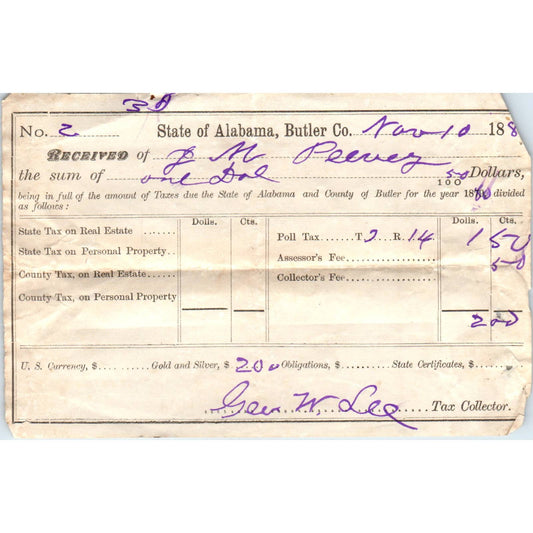 No. 2 State of Alabama, Butler Co. Nov 10 188
RECEIVED of J M Peevey
the sum of one Dol 50/100 Dollars,
being in full of the amount of Taxes due the State of Alabama and County of Butler for the year 1880 divided
as follows:
Dolls. Cts. Dolls. Cts.
State Tax on Real Estate ...... Poll Tax...... T 2 . R. 14 1 50
State Tax on Personal Property.. Assessor's Fee...... 50
County Tax, on Real Estate...... Collector's Fee......
County Tax, on Personal Property
200
U. S. Currency, $.......... Gold and Silver, $ 200 Obligations, $.......... State Certificates, $..........
Geo W. Lee Tax Collector.